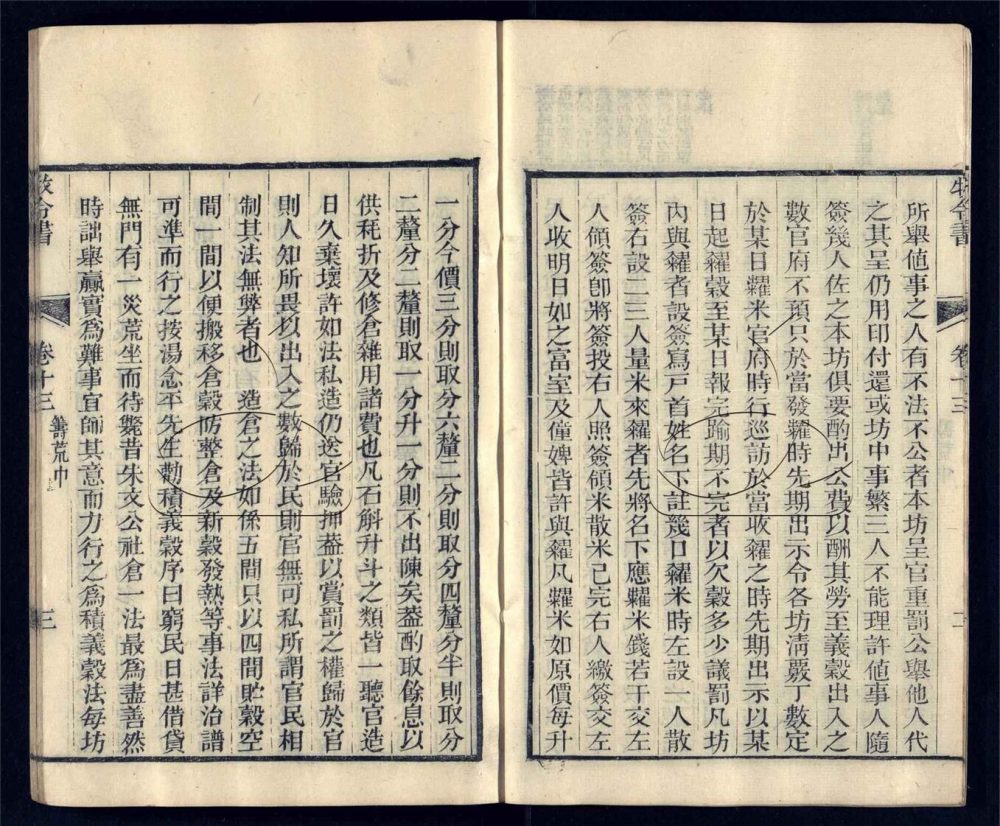 所舉値事之人有不法不公者本坊呈官重罰公舉他人代
之其呈仍用印付還或坊中事繁三人不能理許値事人隨
簽幾人佐之本坊俱要酌出公費以酬其勞至義穀出入之
數官府不預只於當發糶時先期出示令各坊淸覈丁數定
於某日糶米官府時行巡訪於當收糴之時先期出示以某
日起糴穀至某日報完踰期不完者以欠穀多少議罰凡坊
內與糴者設簽寫戸首姓名下註幾口糴米時左設一人散
簽右設二三人量米來糴者先將名下應糶米錢若干交左
人領簽卽將簽投右人照簽領米散米已完右人繳簽交左
人收明日如之富室及僮婢皆許與糴凡糶米如原價每升
卷十三
一分今價三分則取分六釐二分則取分四釐分半則取分
二釐分二釐則取一分升一分則不出陳矣葢酌取餘息以
供秏折及修倉雜用諸費也凡石斛升斗之類皆一聽官造
日久棄壞許如法私造仍送官驗押葢以賞罰之權歸於官
則人知所畏以出入之數歸於民則官無可私所謂官民相
制其法無弊者也 造倉之法如係五間只以四間貯穀空
間一間以便搬移倉穀防整倉及新穀發熱等事法詳治譜
可準而行之按湯念平先生勸積義穀序曰窮民日甚借貸
無門有一災荒坐而待斃昔朱文公社倉一法最爲盡善然
時詘舉贏實爲難事宜師其意而力行之爲積義穀法每坊
牧令書 卷十三 籌荒中 三